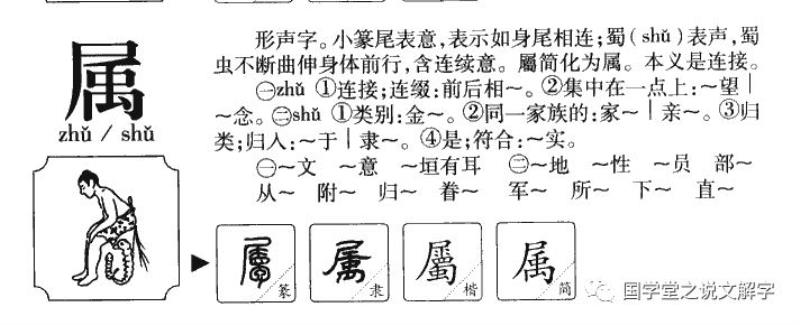 属
zhǔ / shǔ
形声字。小篆尾表意,表示如身尾相连;蜀(shǔ)表声,蜀
虫不断曲伸身体前行,含连续意。屬简化为属。本义是连接。
㊀zhǔ ①连接;连缀:前后相~。②集中在一点上:~望|
~念。㊁shǔ ①类别:金~。②同一家族的:家~|亲~。③归
类;归入:~于|隶~。④是;符合:~实。
㊀~文 ~意 ~垣有耳 ㊁~地 ~性 ~员 部~
从~ 附~ 归~ 眷~ 军~ 所~ 下~ 直~
屬 篆
属 隶
屬 楷
属 简
国学堂之说文解字